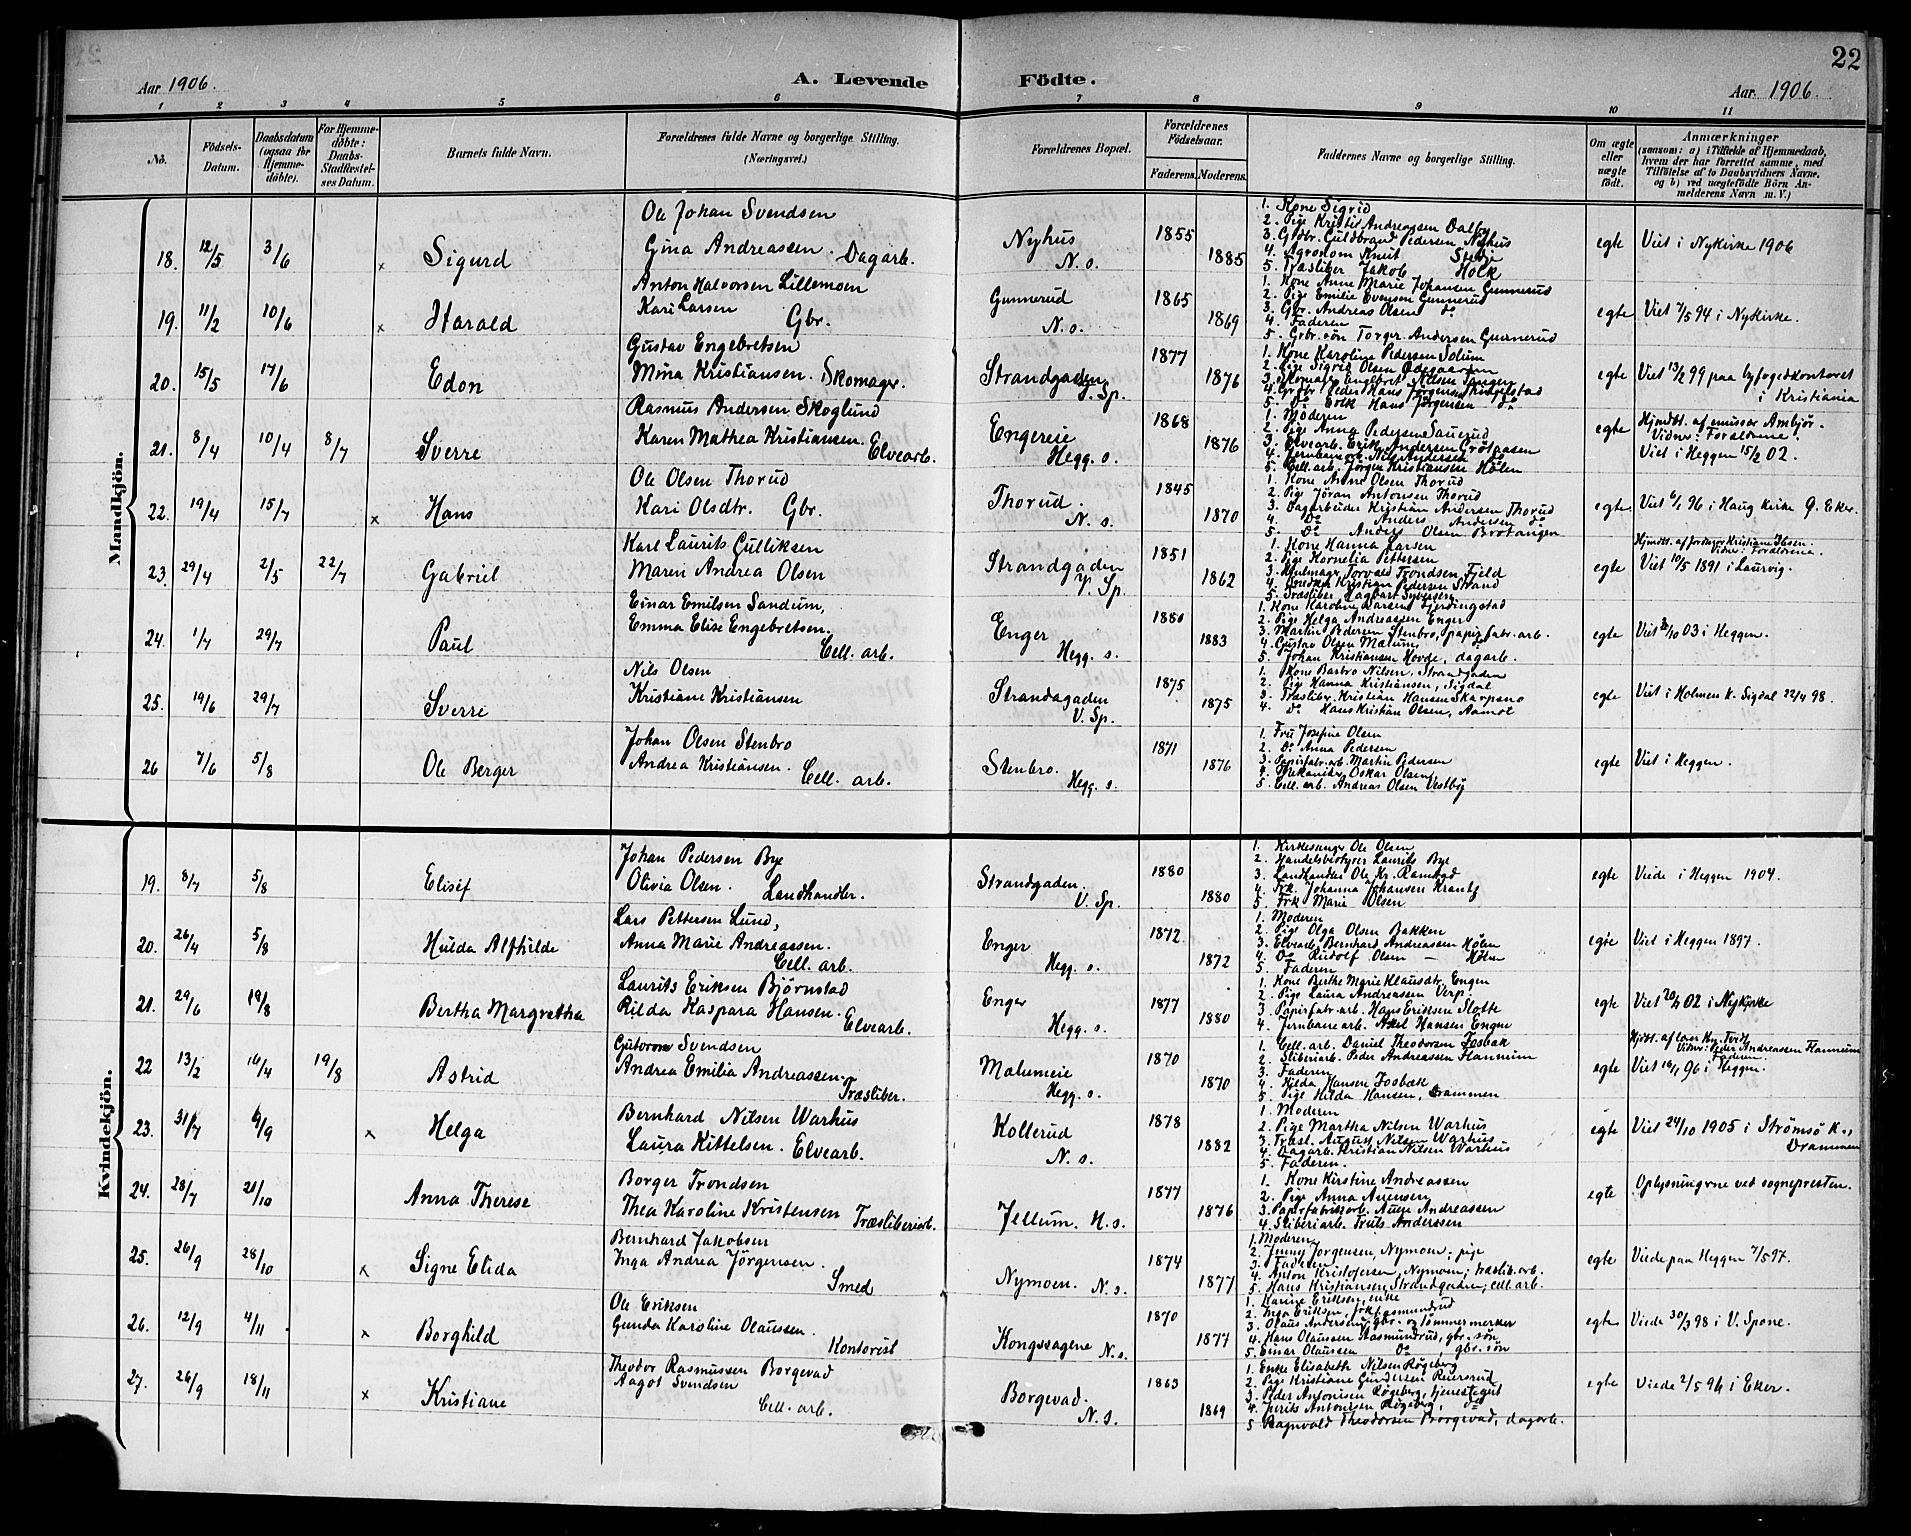 22
Aar 1906. A. Levende Födte. Aar 1906.
1 2 3 4 5 6 7 8 9 10 11
No.
Födsels-Datum.
Daabsdatum (ogsaa for Hjemme-döbte).
For Hjemme-döbte: Daabs-Stadfæstel-ses Datum.
Barnets fulde Navn.
Forældrenes fulde Navne og borgerlige Stilling. (Næringsvei.)
Forældrenes Bopæl.
Forældrenes Födselsaar.
Faderens. Moderens.
Faddernes Navne og borgerlige Stilling.
Om ægte eller uægte födt.
Anmærkninger
(saasom: a) i Tilfælde af Hjemmedaab, hvem der har forrettet samme, med Tilföielse af to Daabsvidners Navne. og b) ved uægtefödte Börn Anmelderens Navn m. V.)
Mandkjön.
18. 12/5 3/6 x Sigurd
Ole Johan Svendsen
Gina Andreassen. Dagarb.
Nyhus N. s. 1855 1885
1. Kone Sigrid
2. Pige Kristis Andreassen Dalby
3. Gdbr. Guldbrand Pedersen Nyhus
4. Agronom Knut
5. Træsliber Jakob Holk
egte Viet i Nykirke 1906
19. 11/2 10/6 x Harald
Anton Halvorsen Lillemoen
Kari Larsen Gbr.
Gunnerud N. s. 1865 1869
1. Kone Anne Marie Johansen Gunnerud
2. Pige Emilie Evensen Gunnerud
3. Gbr. Andreas Olsen do
4. Faderen
5. Grbr. sön Torger Andersen Gunnerud
egte Viet 7/5 94 i Nykirke.
20. 15/5 17/6 Edon
Gustav Engebretsen
Mina Kristiansen. Skomager.
Strandgaden V. Sp. 1877 1876
1. Kone Karoline Pedersen Solum
2. Pige Sigrid Olsen Ødegaarden
3. Skomager Engebret Nilsen
4. Grbr. Peder Hans Jörgensen Ringelstad
5. Do Erik Hans Jörgensen do
egte Viet 13/2 99 paa byfogedkontoret i Kristiania
21. 8/4 10/4 8/7 Sverre
Rasmus Andersen Skoglund
Karen Mathea Kristiansen. Elvearb.
Engereie Hegg. s. 1868 1876
1. Moderen
2. Pige Anna Pedersen Sauerud
3. Elvearb. Erik Andersen Grötpasen
4. Jernbanearb. Nils Andersen do
5. Cell. arb. Jörgen Kristiansen Hölen
egte Hjmdbt. af emissær Ambjör. Vidner: Forældrene. Viet i Heggen 15/2 02.
22. 19/4 15/7 x Hans
Ole Olsen Thorud
Kari Olsdtr. Gbr.
Thorud. N. s. 1845 1870
1. Kone Anne Olsen Thorud
2. Pige Jöran Antonsen Thorud
3. Dagarbeider Kristian Andersen Thorud
4. Do Anders Andersen do
5. Do Anders Olsen Brotangen
egte Viet 6/1 96 i Haug kirke Ø. Eker.
23. 29/4 2/5 22/7 Gabriel
Karl Laurits Gulliksen
Maren Andrea Olsen
Strandgaden V. Sp. 1851 1862
1. Kone Hanna Larsen
2. Pige Kornelia Pettersen
3. Hjulmager Torvald Trondsen Fjeld
4. Snedker Kristian Pedersen Strand
5. Træsliber Dagbart Syversen
egte Hjmdbt. af Jordmor Kristiane Ibsen. Vidner: Forældrene. Viet 10/5 1891 i Laurvig.
24. 1/7 29/7 Paul
Einar Emilsen Sandum,
Emma Elise Engebretsen. Cell. arb.
Enger Hegg. s. 1880 1883
1. Kone Karoline Larsen Gjerdingstad
2. Pige Helga Andreassen Enger
3. Martin Pedersen Stenbro, papirfabr. arb.
4. Gustav Olsen Malum, do
5. Johan Kristiansen Hovde, dagarb.
egte Viet 3/10 03 i Heggen.
25. 19/6 29/7 Sverre
Nils Olsen
Kristiane Kristiansen
Strandagaden V. Sp. 1875 1875
1. Kone Barbro Nilsen, Strandgaden
2. Pige Hanna Kristiansen, Sigdal
3. Træsliber Kristian Hansen Skarpsno
4. do Hans Kristian Olsen, Aamot
egte Viet i Holmen k. Sigdal 22/4 98.
26 7/6 5/8 Ole Berger
Johan Olsen Stenbro
Andrea Kristiansen. Cell. arb.
Stenbro. Hegg. s. 1871 1876
1. Fru Josefine Olsen
2. Do Anna Pedersen
3. Papirfabr. arb. Martin Pedersen
4. Mekaniker Oskar Olsen
5. Cell. arb. Andreas Olsen Vestby
egte Viet i Heggen.
Kvindekjön.
19. 8/7 5/8 Elisif
Johan Pedersen Bye
Olivia Olsen. Landhandler.
Strandgaden. V. Sp. 1880 1880
1. Kirkesanger Ole Olsen
2. Handelsbestyrer Laurits Bye
3. Landhandler Ole Kr. Ramstad
4. Frk. Johanna Johansen Krantz
5. Frk Marie Olsen
egte Viede i Heggen 1904.
20. 26/4 5/8 Hulda Alfhilde
Lars Pettersen Lund,
Anna Marie Andreassen. Cell. arb.
Enger Hegg. s. 1872. 1872
1. Moderen
2. Pige Olga Olsen Bakken
3. Elvearb. Bernhard Andreassen Hölen
4. Do Rudolf Olsen — Hölen
5. Faderen
egte Viet i Heggen 1897.
21. 29/6 19/8 Bertha Margretha
Laurits Eriksen Bjørnstad
Rilda Kaspara Hansen. Elvearb.
Enger Hegg. s. 1877 1880
1. Kone Berthe Marie Klausdtr. Engen
2. Pige Laura Andreassen Verp.
3. Papirfabr. arb. Hans Eriksen Slotte
4. Jernbanearb. Axel Hansen Engen
egte Viet 20/7 02 i Nykirke
22 13/2 16/4 19/8 Astrid
Gutorm Svendsen
Andrea Emilia Andreassen. Træsliber.
Malumeie Hegg. s. 1870 1870
1. Cell. arb. Daniel Theodorsen Fosbæk
2. Sliberiarb. Peder Andreassen Flannum
3. Faderen
4. Hilda Hansen Fosbæk
5. Pige Hilda Hansen, Drammen
egte Vidner: Peder Andreassen Flannum Faderen. Viet 16/1 96 i Heggen.
23. 31/7 9/9 x Helga
Bernhard Nilsen Warhus
Laura Kittelsen. Elvearb.
Kollerud N. s. 1878 1882
1. Moderen
2. Pige Martha Nilsen Warhus
3. Træsl. August Nilsen Warhus
4. Dagarb. Kristian Nilsen Warhus
5. Faderen.
egte Viet 24/10 1905 i Strömsö K., Drammen
24. 28/7 21/10 Anna Therese
Borger Trondsen
Thea Karoline Kristensen Træsliberiarb.
Jellum. H. s. 1877 1876
1. Kone Kirstine Andreassen
2. Pige Anna Auensen
3. Papirfabrikarb. Auen Andreassen
4. Sliberiarb. Truls Anderssen
egte Oplysningerne ved sognepresten.
25. 26/9 28/10 x Signe Elida
Bernhard Jakobsen
Inga Andrea Jörgensen. Smed
Nymoen. N. s. 1874 1877
1. Moderen
2. Jenny Jorgensen, Nymoen; pige
3. Faderen
4. Anton Kristofersen, Nymoen; træslib. arb.
5. Hans Kristiansen, Strandgaden; cell. arb.
egte Viede paa Heggen 7/5 97.
26. 12/9 4/11 x Borghild
Ole Eriksen
Gunda Karoline Olaussen. Kontorist
Kongssagene N. s. 1870 1877
1. Karine Eriksen, enke
2. Inga Eriksen, frk.
3. Olaus Andersen, gbr. og tömmermerker
4. Hans Olaussen Aasmundrud, gbr. sön
5. Einar Olaussen do, gbr. sön
egte Viede 30/3 98 i V. Spone.
27. 26/9 18/11 x Kristiane
Theodor Rasmussen Borgevad
Aagot Svendsen Cell. arb.
Borgevad. N. s. 1863 1869
1. Enke Elisabeth Nilsen Røgeberg
2. Pige Kristiane Gundersen Reiersrud
3. Peder Antonisen Røgeberg, tjenestegut
4. Jerits Antonisen Røgeberg, do
5 Ragnvald Theodorsen Borgevad, dagarb.
egte Viede 2/5 96 i Eker.